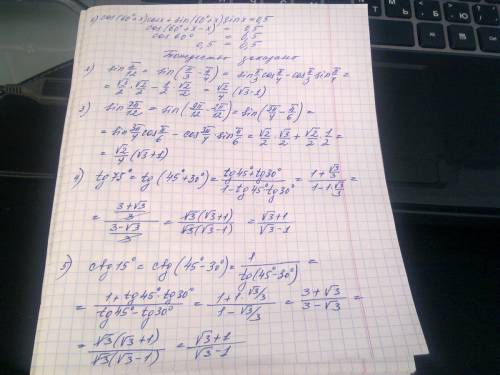 1) cos(60°+x)cosx + sin(60°+x)sinx = 0,5
cos(60°+x-x) = 0,5
cos 60° = 0,5
0,5 = 0,5
Тождество доказано
2) sin π/12 = sin(π/3 - π/4) = sin π/3 cos π/4 - cos π/3 sin π/4 =
= √3/2 · √2/2 - 1/2 · √2/2 = √2/4 (√3-1)
3) sin 7π/12 = sin(9π/12 - 2π/12) = sin(3π/4 - π/6) =
= sin 3π/4 cos π/6 - cos 3π/4 sin π/6 = √2/2 · √3/2 + √2/2 · 1/2 =
= √2/4 (√3+1)
4) tg 75° = tg(45°+30°) = (tg 45°+tg 30°)/(1-tg 45° tg 30°) = (1+√3/3)/(1-1·√3/3) =
= ((3+√3)/3)/((3-√3)/3) = √3(√3+1)/√3(√3-1) = (√3+1)/(√3-1)
5) ctg 15° = ctg(45°-30°) = 1/tg(45°-30°) =
= (1+tg 45° tg 30°)/(tg 45°-tg 30°) = (1+1·√3/3)/(1-√3/3) = (3+√3)/(3-√3) =
= √3(√3+1)/√3(√3-1) = (√3+1)/(√3-1)